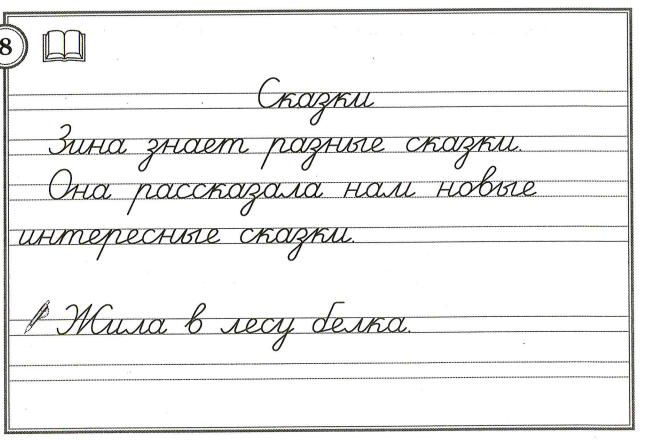 8
Сказки
Зина знает разные сказки.
Она рассказала нам новые
интересные сказки.
Жила в лесу белка.